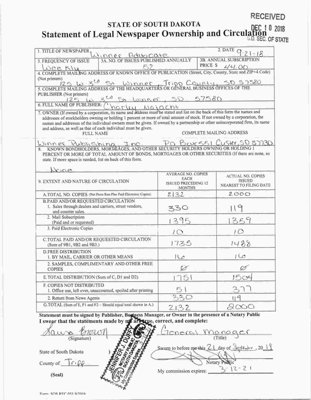 RECEIVED
DEC 10 2018
S.D. SEC. OF STATE
STATE OF SOUTH DAKOTA
Statement of Legal Newspaper Ownership and Circulation
1. TITLE OF NEWSPAPER Winner Advocate
2. DATE 9-21-18
3. FREQUENCY OF ISSUE Weekly
3A. NO. OF ISSUES PUBLISHED ANNUALLY 52
3B. ANNUAL SUBSCRIPTION PRICE $ 44.00
4. COMPLETE MAILING ADDRESS OF KNOWN OFFICE OF PUBLICATION (Street, City, County, State and ZIP+4 Code) (Not printers)
125 W 3rd St Winner, Tripp County, SD 57580
5. COMPLETE MAILING ADDRESS OF THE HEADQUARTERS OR GENERAL BUSINESS OFFICES OF THE PUBLISHER (Not printers)
125 W 3rd St Winner, SD 57580
6. FULL NAME OF PUBLISHER: Charley Najacht
7. OWNER (If owned by a corporation, its name and address must be stated and list on the back of this form the names and addresses of stockholders owning or holding 1 percent or more of total amount of stock. If not owned by a corporation, the names and addresses of the individual owners must be given. If owned by a partnership or other unincorporated firm, its name and address, as well as that of each individual must be given.
FULL NAME COMPLETE MAILING ADDRESS
Winner Publishing Inc PO Box 551 Custer, SD 57730
8. KNOWN BONDHOLDERS, MORTGAGES, AND OTHER SECURITY HOLDERS OWNING OR HOLDING 1 PERCENT OR MORE OF TOTAL AMOUNT OF BONDS, MORTGAGES OR OTHER SECURITIES (If there are none, so state. If more space is needed, list on back of this form.
None
9. EXTENT AND NATURE OF CIRCULATION
AVERAGE NO. COPIES EACH ISSUED PRECEEDING 12 MONTHS
ACTUAL NO. COPIES ISSUED NEAREST TO FILING DATE
A. TOTAL NO. COPIES 2132 2000
B. PAID AND/OR REQUESTED CIRCULATION
1. Sales through dealers and carriers, street vendors, and counter sales. 330 119
2. Mail Subscription (Paid and or requested) 1395 1359
3. Paid Electronic Copies 10 10
C. TOTAL PAID AND/OR REQUESTED CIRCULATION (Sum of 9B1, 9B2 and 9B3.) 1735 1488
D. FREE DISTRIBUTION
1. BY MAIL, CARRIER OR OTHER MEANS 16 16
2. SAMPLES, COMPLIMENTARY AND OTHER FREE COPIES Ø Ø
E. TOTAL DISTRIBUTION (Sum of C, D1 and D2) 1751 1504
F. COPIES NOT DISTRIBUTED
1. Office use, left over, unaccounted, spoiled after printing 51 377
2. Return from News Agents 330 119
G. TOTAL (Sum of E, F1 and F2 - Should equal total shown in A.) 2132 2000
Statement must be signed by Publisher, Business Manager, or Owner in the presence of a Notary Public
I swear that the statements made by me are true, correct, and complete:
General Manager
(Signature) (Title)
State of South Dakota
Sworn to before me this 21 day of September, 2018
County of Tripp
Notary Public
(Seal)
My commission expires: 3-12-21